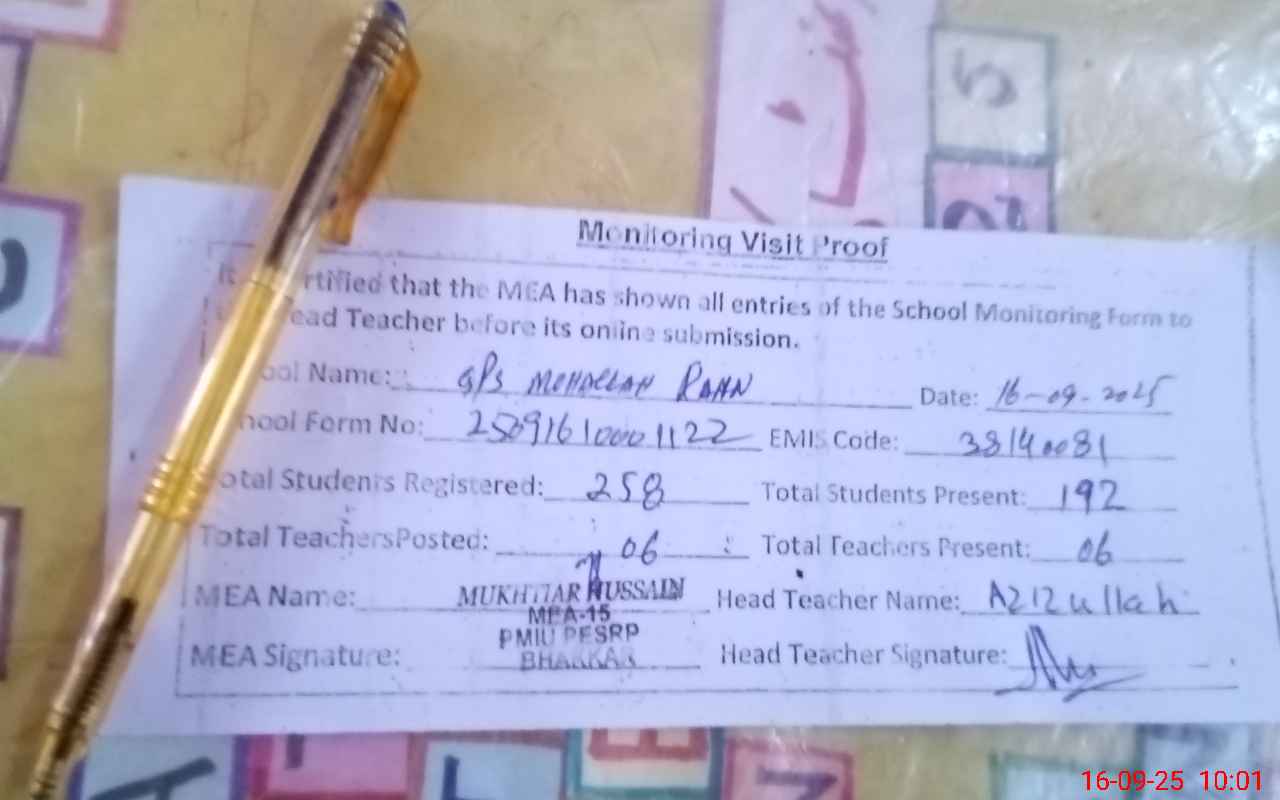 Monitoring Visit Proof
It rtified that the MEA has shown all entries of the School Monitoring Form to
ead Teacher before its online submission.
ool Name: GPS MOHALLAH RAHN Date: 16-09-2025
hool Form No: 25091610001122 EMIS Code: 38140081
otal Students Registered: 258 Total Students Present: 192
Total TeachersPosted: 06 Total Teachers Present: 06
MEA Name: MUKHTIAR HUSSAIN Head Teacher Name: Azizullah
MEA-15
PMIU PESRP
MEA Signature: BHAKKAR Head Teacher Signature:
16-09-25 10:01